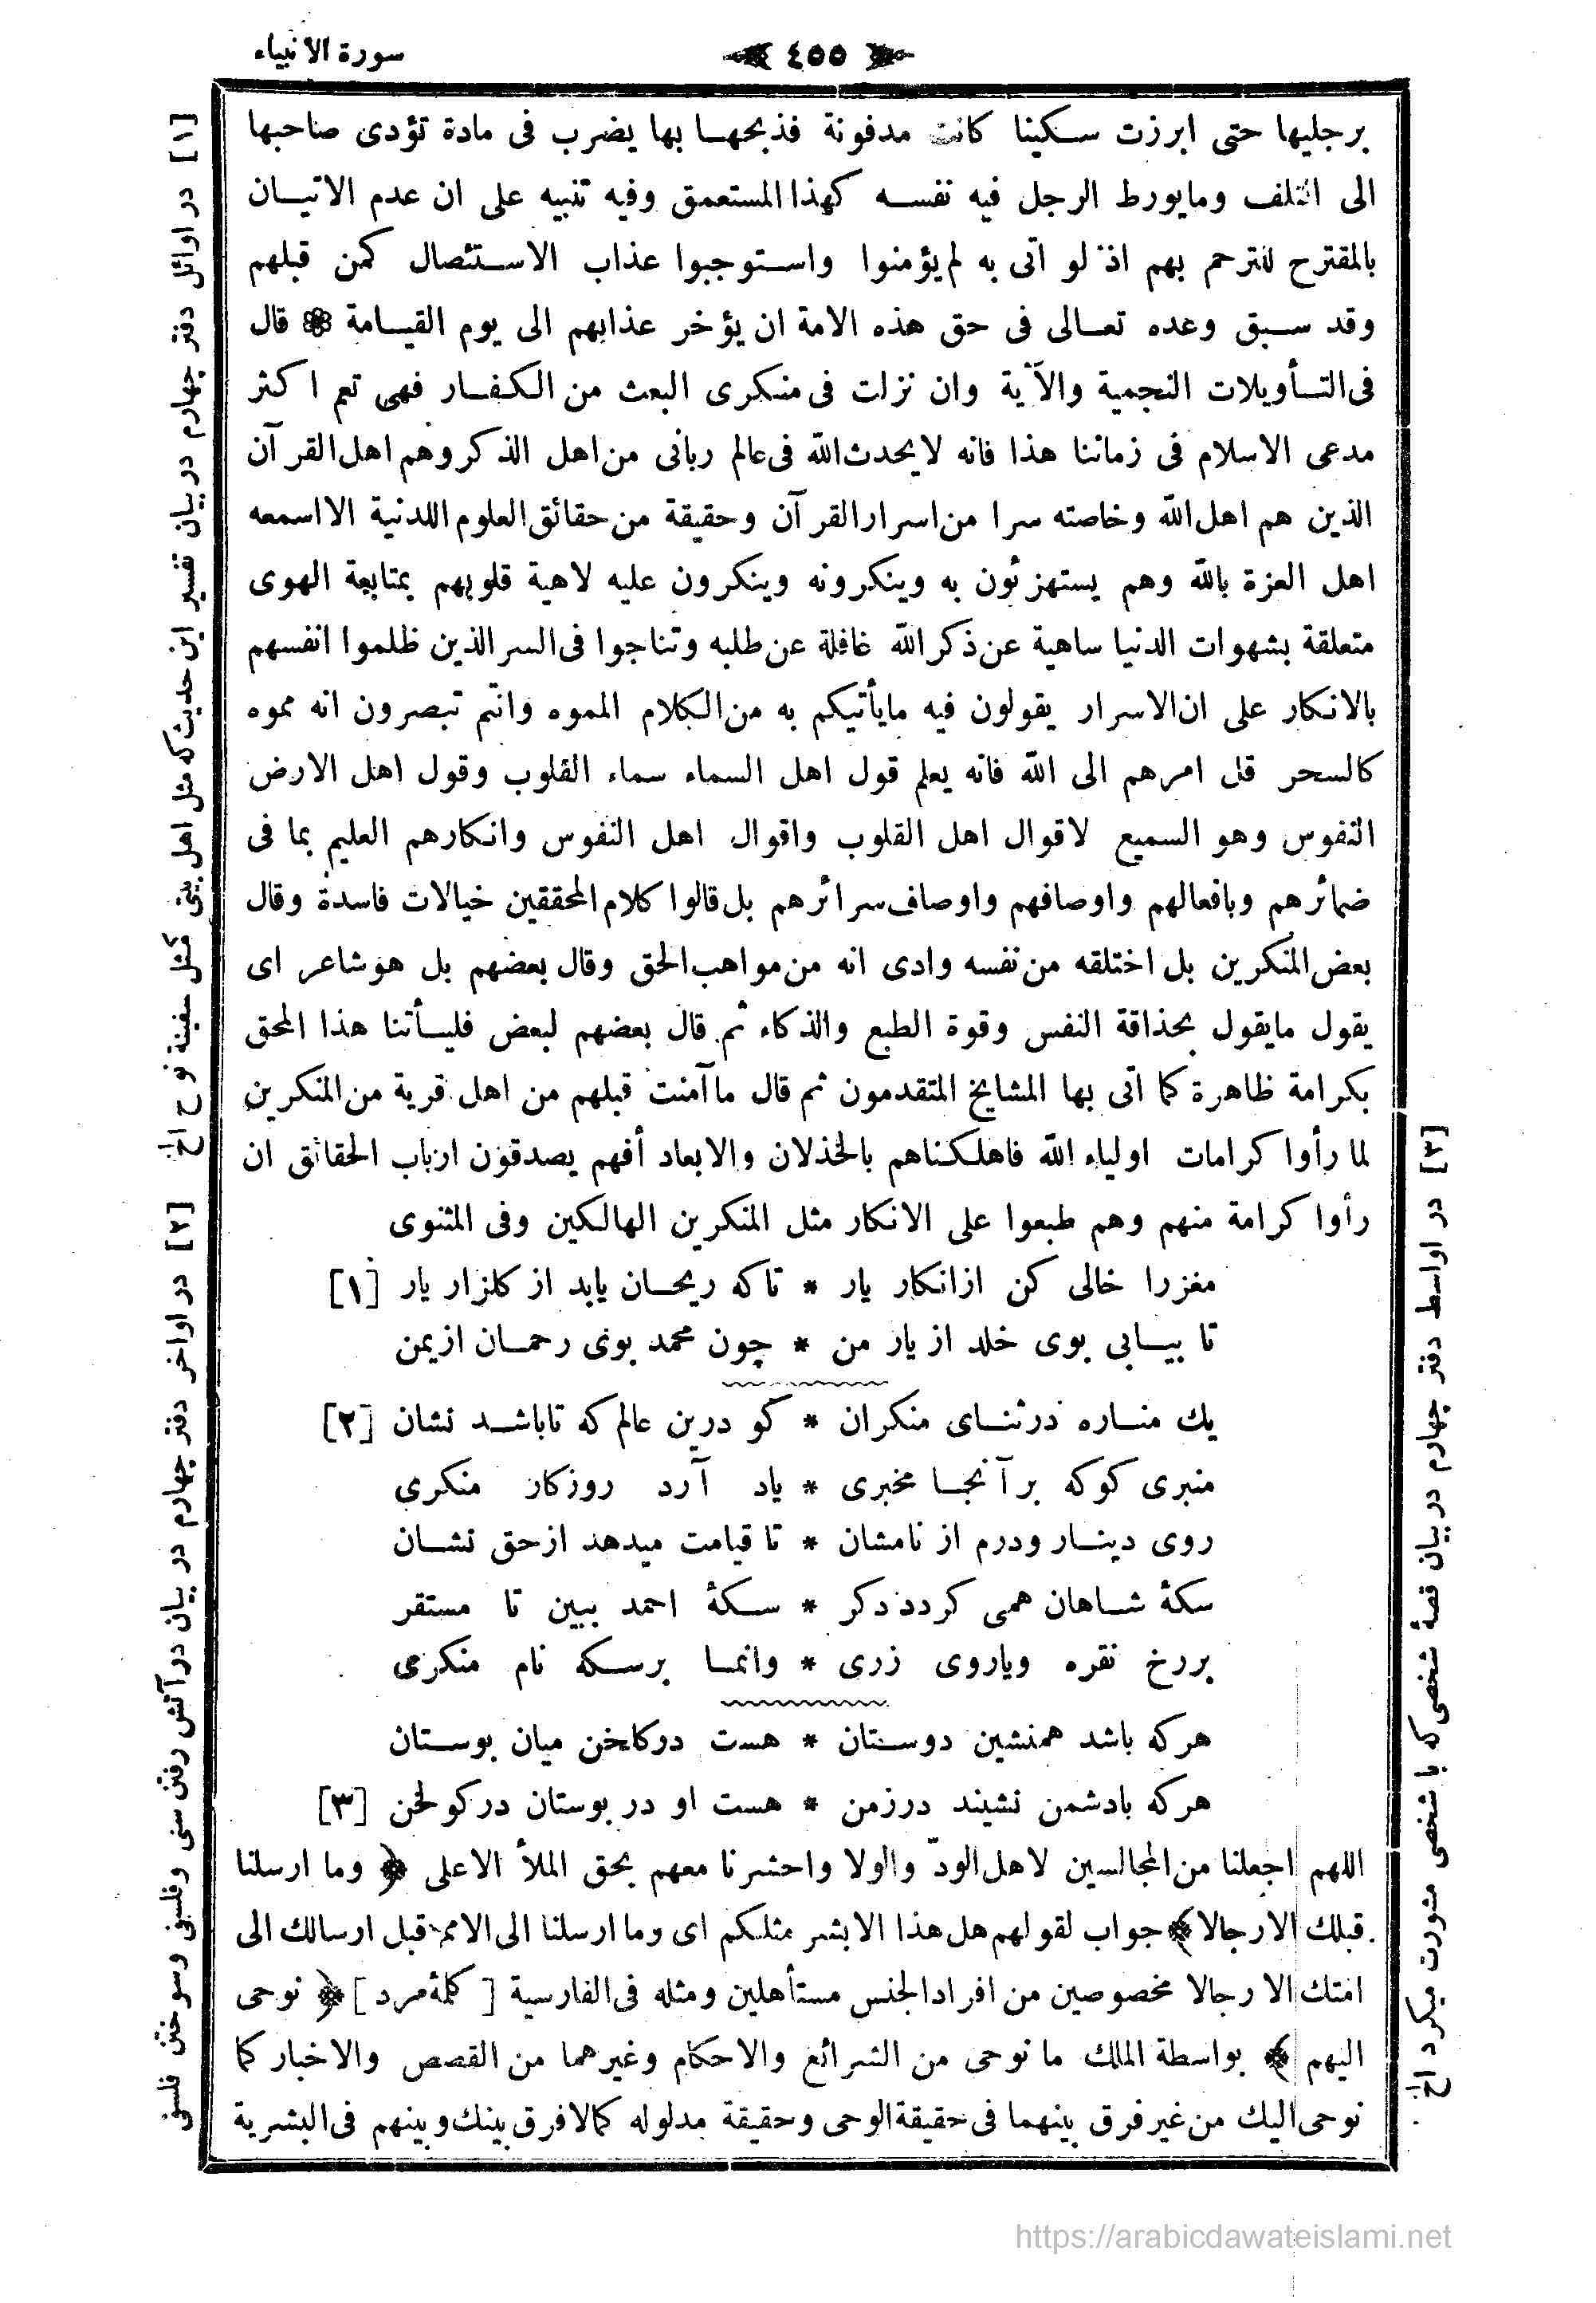 سورة الانبياء
٤٥٥
برجليها حتى ابرزت سكينا كانت مدفونة فذبحها بها يضرب فى مادة تؤدى صاحبها
الى التلف ومايورط الرجل فيه نفسه كهذا المستعمق وفيه تنبيه على ان عدم الاتيان
بالمقترح للترحم بهم اذ لو اتى به لم يؤمنوا واستوجبوا عذاب الاستئصال كمن قبلهم
وقد سبق وعده تعالى فى حق هذه الامة ان يؤخر عذابهم الى يوم القيامة ❁ قال
فى التأويلات النجمية والآية وان نزلت فى منكرى البعث من الكفار فهى تعم اكثر
مدعى الاسلام فى زماننا هذا فانه لايحدث الله فى عالم ربانى من اهل الذكر وهم اهل القرآن
الذين هم اهل الله وخاصته سرا من اسرار القرآن وحقيقة من حقائق العلوم اللدنية الا اسمعه
اهل العزة بالله وهم يستهزئون به وينكرونه وينكرون عليه لاهية قلوبهم بمتابعة الهوى
متعلقة بشهوات الدنيا ساهية عن ذكر الله غافلة عن طلبه وتناجوا فى السر الذين ظلموا انفسهم
بالانكار على ان الاسرار يقولون فيه مايأتيكم به من الكلام المموه وانتم تبصرون انه مموه
كالسحر قل امرهم الى الله فانه يعلم قول اهل السماء سماء القلوب وقول اهل الارض
النفوس وهو السميع لاقوال اهل القلوب واقوال اهل النفوس وانكارهم العليم بما فى
ضمائرهم وبافعالهم واوصافهم واوصاف سرائرهم بل قالوا كلام المحققين خيالات فاسدة وقال
بعض المنكرين بل اختلقه من نفسه وادى انه من مواهب الحق وقال بعضهم بل هو شاعر اى
يقول مايقول بحذاقة النفس وقوة الطبع والذكاء ثم قال بعضهم لبعض فليأتنا هذا المحق
بكرامة ظاهرة كما اتى بها المشايخ المتقدمون ثم قال ما آمنت قبلهم من اهل قرية من المنكرين
لما رأوا كرامات اولياء الله فاهلكناهم بالخذلان والابعاد أفهم يصدقون ارباب الحقائق ان
رأوا كرامة منهم وهم طبعوا على الانكار مثل المنكرين الهالكين وفى المثنوى
مغزرا خالى كن ازانكار يار * تاكه ريحان يابد از كلزار يار [١]
تا بيابى بوى خلد از يار من * چون محمد بوى رحمان ازيمن
يك مناره درثناى منكران * كو درين عالم كه تاباشد نشان [٢]
منبرى كوكه بر آنجا مخبرى * ياد آرد روزكار منكرى
روى دينار ودرم از نامشان * تا قيامت ميدهد ازحق نشان
سكۀ شاهان همى كردد دكر * سكۀ احمد ببين تا مستقر
بررخ نقره وياروى زرى * وانما برسكه نام منكرى
هركه باشد همنشين دوستان * هست دركلخن ميان بوستان
هركه بادشمن نشيند درزمن * هست او در بوستان دركولخن [٣]
اللهم اجعلنا من المجالسين لاهل الودّ والولا واحشرنا معهم بحق الملأ الاعلى ﴿ وما ارسلنا
قبلك الا رجالا ﴾ جواب لقولهم هل هذا الا بشر مثلكم اى وما ارسلنا الى الامم قبل ارسالك الى
امتك الا رجالا مخصوصين من افراد الجنس مستأهلين ومثله فى الفارسية [ كلمۀ مرد ] ﴿ نوحى
اليهم ﴾ بواسطة الملك ما نوحى من الشرائع والاحكام وغيرهما من القصص والاخبار كما
نوحى اليك من غير فرق بينهما فى حقيقة الوحى وحقيقة مدلوله كمالا فرق بينك وبينهم فى البشرية
[١] در اوائل دفتر چهارم در بيان تفسير اين حديث كه مثل اهل بيتى كمثل سفينة نوح الخ
[٢] در اواخر دفتر چهارم در بيان در آتش رفتن سنى وفلسفى وسوختن فلسفى
[٣] در اواسط دفتر چهارم در بيان قصۀ شخصى كه با شخصى مشورت ميكرد الخ
https://arabicdawateislami.net